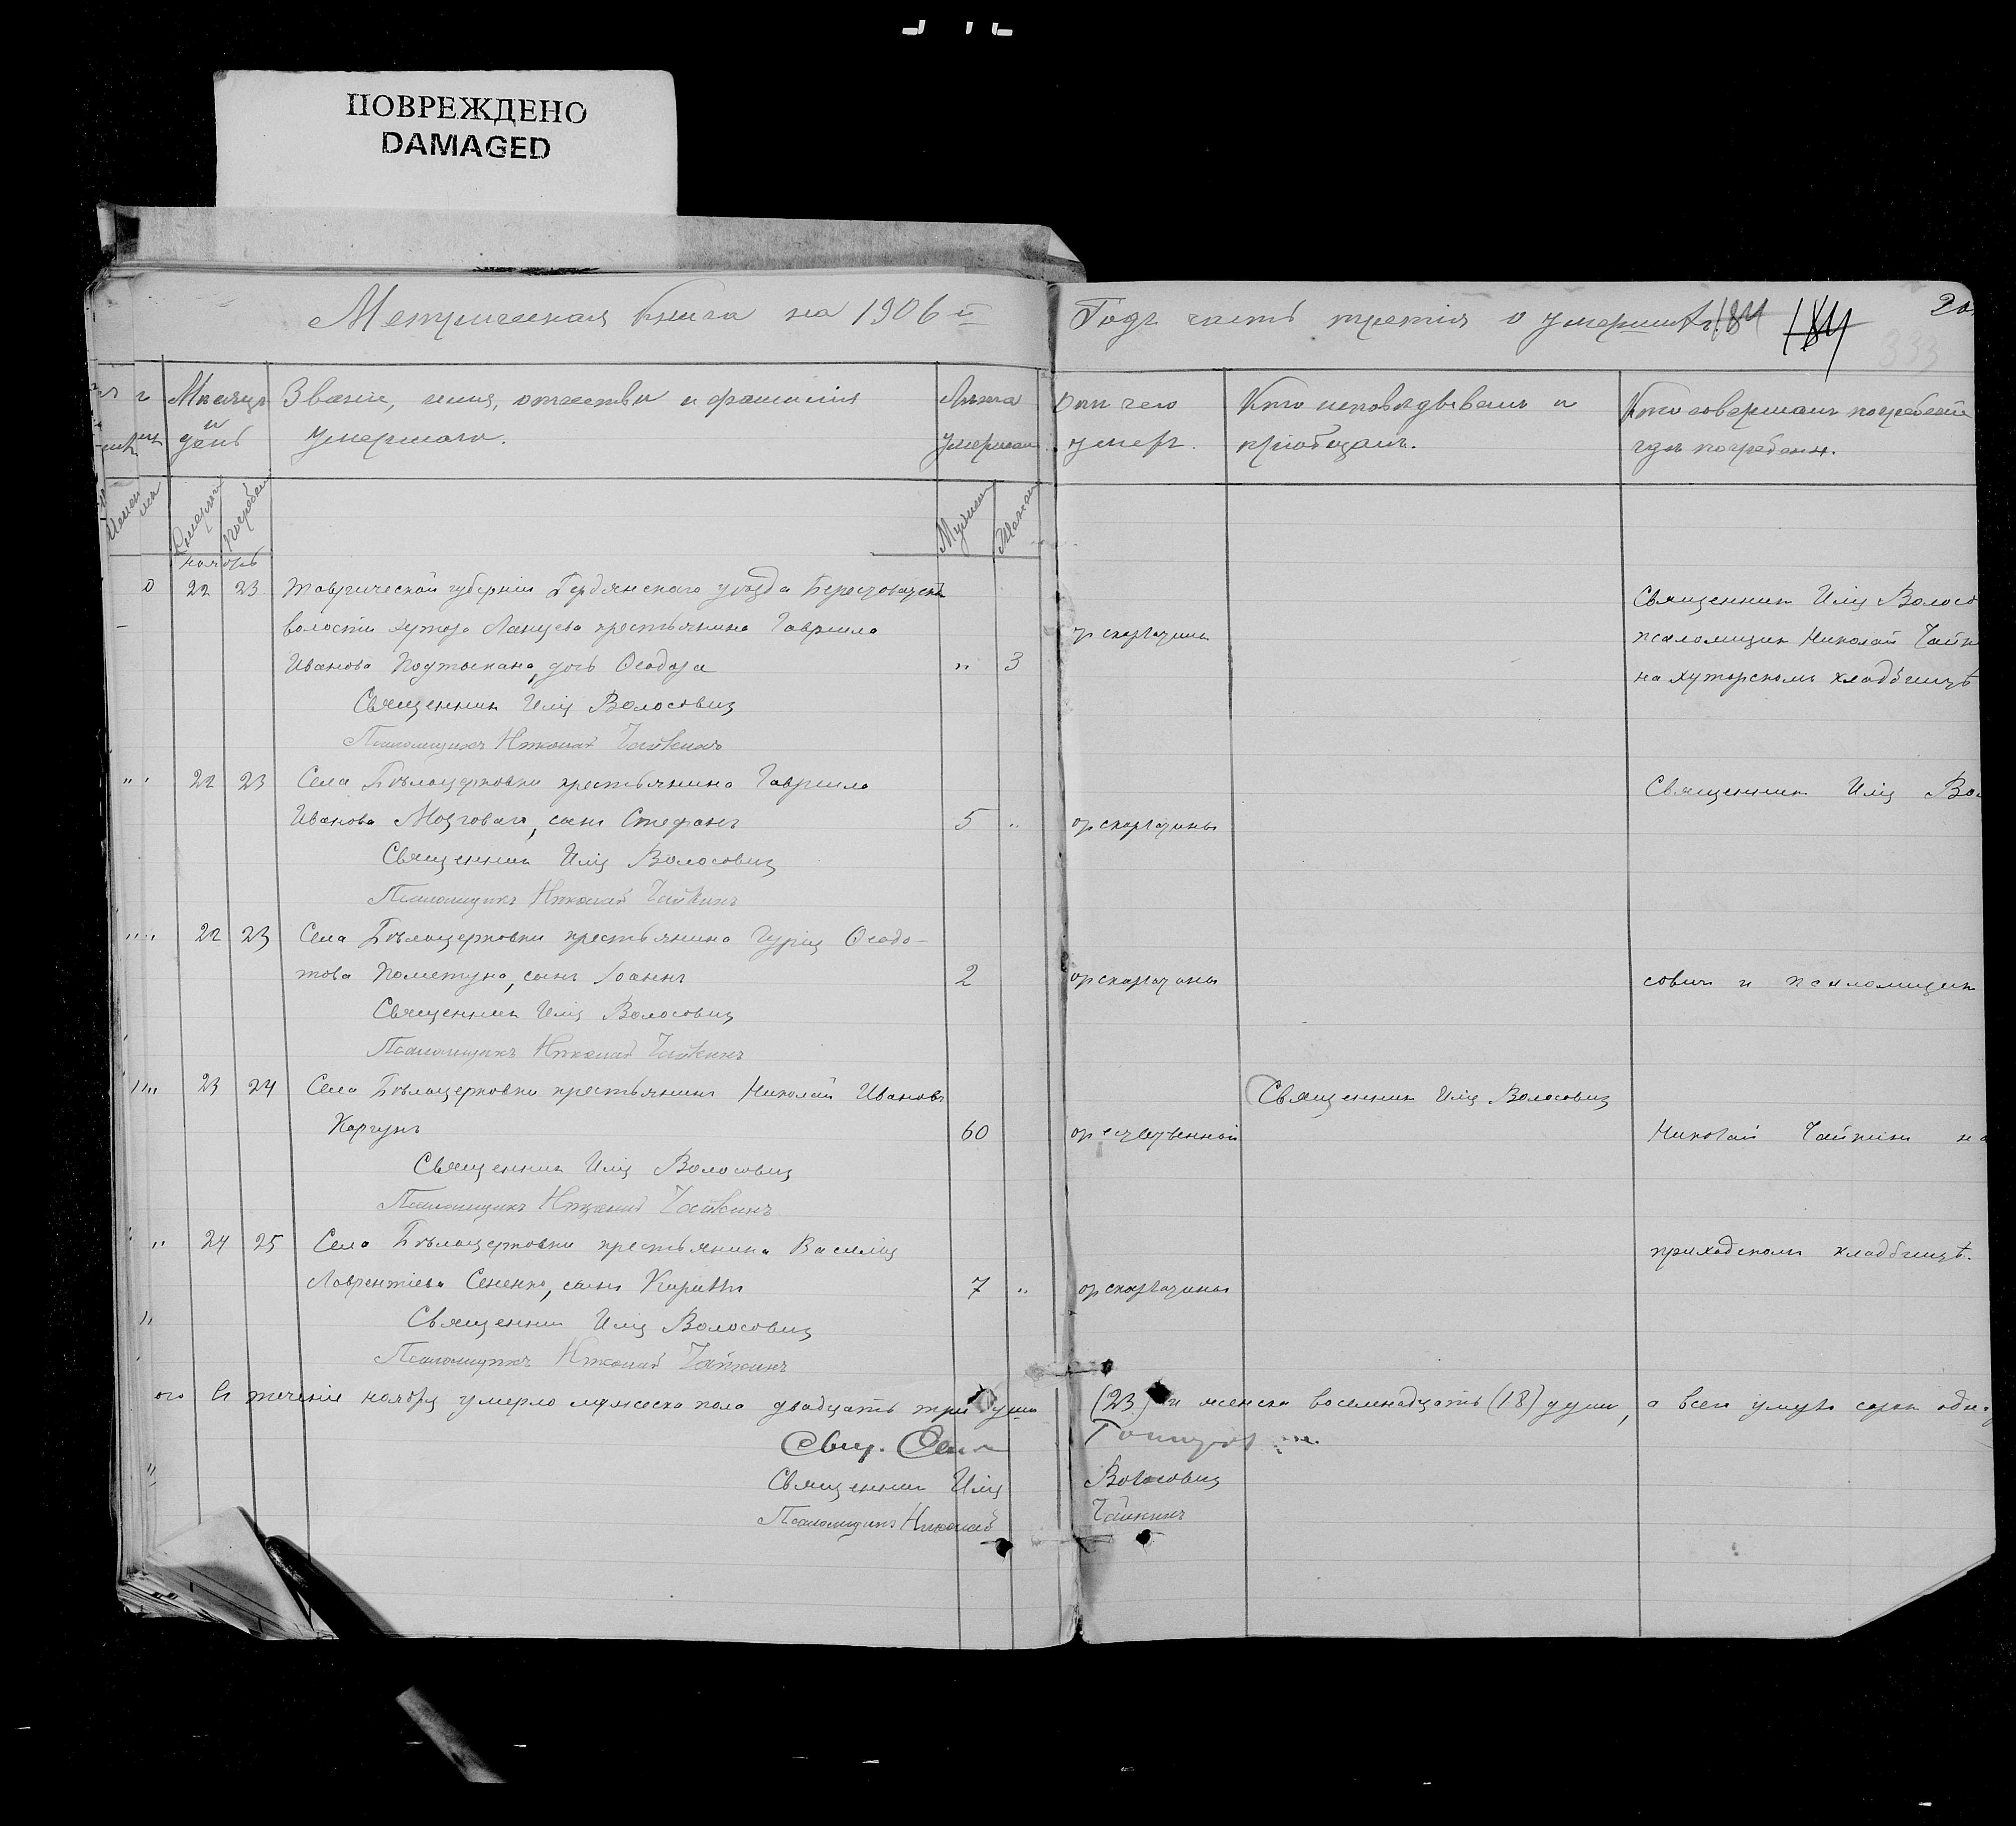 ПОВРЕЖДЕНО
DAMAGED
Метрическая книга на 1906 й
Годъ часть третія о умершихъ 184 184
333
Мѣсяцъ и день
Званіе, имя, отчество и фамилія умершаго.
Лѣта умершаго
Отъ чего умеръ.
Кто исповѣдывалъ и пріобщалъ.
Кто совершалъ погребеніе гдѣ погребенъ.
Смерти
Погребен
Мужеск
Женск
ноябрь
22 23 Таврической губерніи Бердянскаго уѣзда
волости хутора крестьянина Гавріила
Иванова дочь Ѳеодора " 3 от скарлатины
Священник Илія Волосович
Псаломщикъ Николай Чайкинъ
Священник Илія Волосо
псаломщик Николай Чайк
на хуторском кладбищѣ
22 23 Села Бѣлоцерковки крестьянина Гавріила
Иванова Мозговаго, сынъ Стефанъ 5 " от скарлатины
Священник Илія Волосович
Псаломщикъ Николай Чайкинъ
Священник Илія Вол
22 23 Села Бѣлоцерковки крестьянина Гурія Ѳеодо-
това Пометуна, сынъ Іоаннъ 2 от скарлатины
Священник Илія Волосович
Псаломщикъ Николай Чайкинъ
сович и псаломщик
23 24 Села Бѣлоцерковки крестьянинъ Николай Ивановъ
Каргунъ 60
Священник Илія Волосович
Псаломщикъ Николай Чайкинъ
Священник Илія Волосович
Николай Чайкин на
24 25 Села Бѣлоцерковки крестьянина Василія
Лаврентіева Сененко, сынъ Кирилъ 7 " от скарлатины
Священник Илія Волосович
Псаломщикъ Николай Чайкинъ
приходском кладбищѣ.
Въ теченіе ноября умерло мужеска пола двадцать три души (23) и женска восемнадцать (18) душ, а всего умерло сорок одна
Свящ.
Священник Илія Волосович
Псаломщикъ Николай Чайкинъ